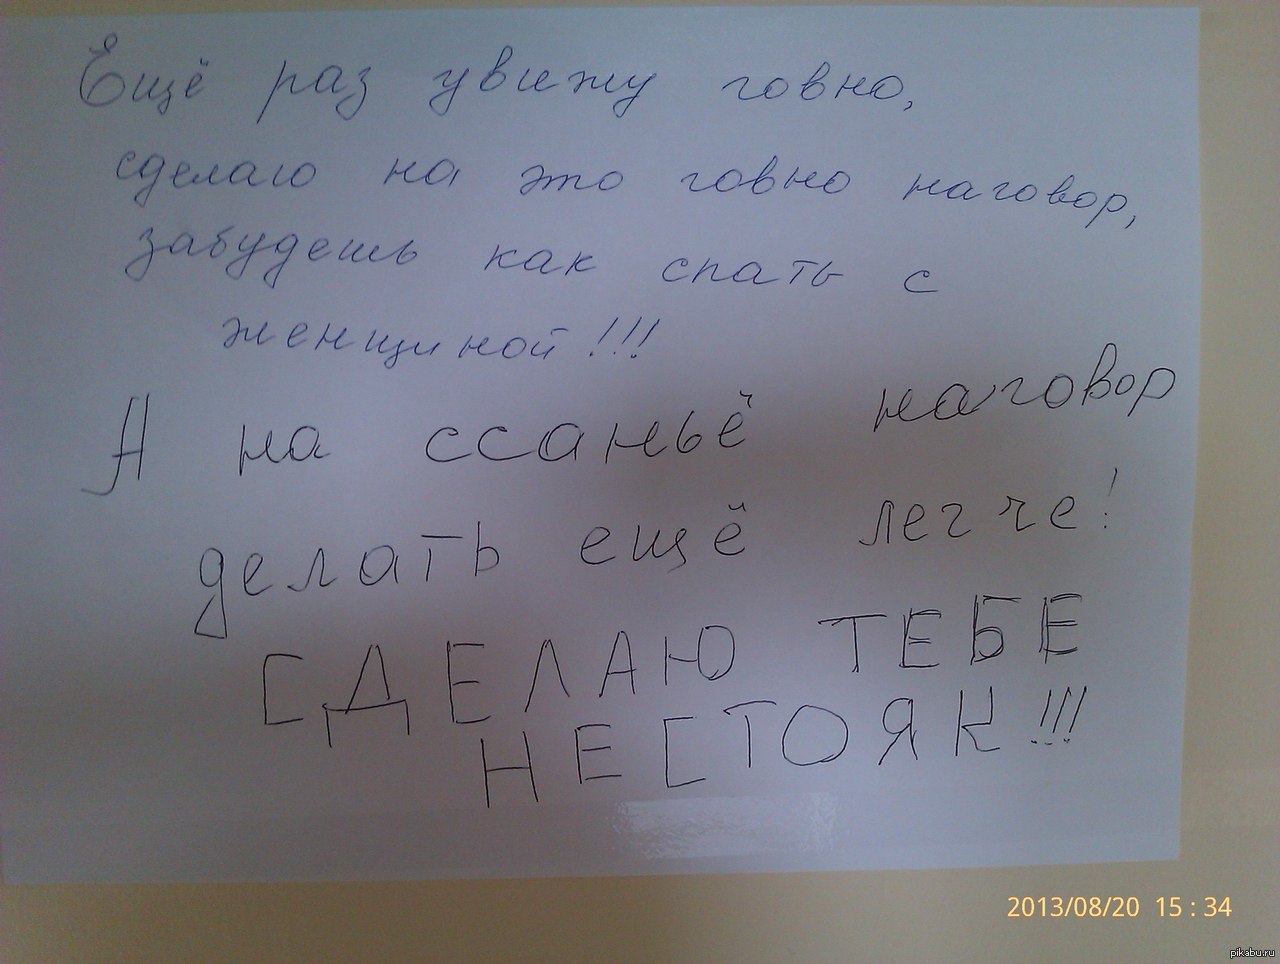 Ещё раз увижу говно,
сделаю на это говно наговор,
забудешь как спать с
женщиной!!!
А на ссаньё наговор
делать ещё легче!
СДЕЛАЮ ТЕБЕ
НЕСТОЯК!!!
2013/08/20 15:34
pikabu.ru